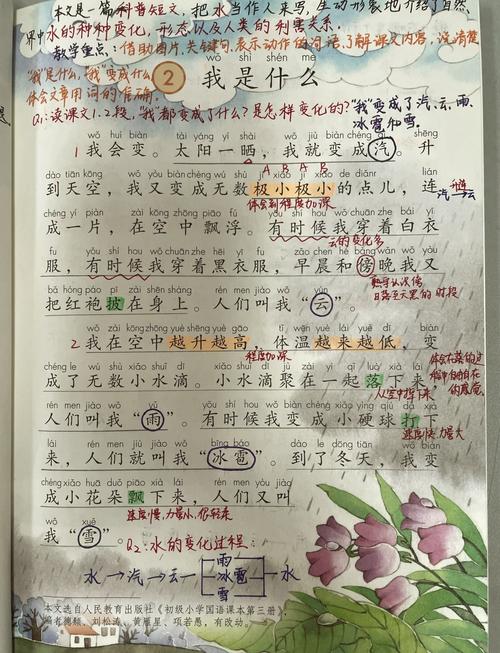 本文是一篇科普短文，把水当作人来写，生动形象地介绍了自然
界中水的种种变化，形态以及人类的利害关系。
教学重点：借助图片，关键句，表示动作的词语，了解课文内容，说清楚
"我"是什么，"我"变成什么
体会文章用词的准确。
wǒ shì shén me
2 我是什么
Q1:读课文1.2段，"我都变成了什么？是怎样变化的？"我"变成了汽、云、雨、
冰雹和雪。
wǒ huì biàn tài yáng yí shài wǒ jiù biàn chéng qì shēng
1 我会变。太阳一晒，我就变成汽。升
A B A B
dào tiān kōng wǒ yòu biàn chéng wú shù jí xiǎo jí xiǎo de diǎnr lián
到天空，我又变成无数极小极小的点儿，连
体会到程度加深
汽→云
chéng yí piàn zài kōng zhōng piāo fú yǒu shí hou wǒ chuān zhe bái yī
成一片，在空中飘浮。有时候我穿着白衣
云的变化多
fu yǒu shí hou wǒ chuān zhe hēi yī fu zǎo chen hé bàng wǎn wǒ yòu
服，有时候我穿着黑衣服，早晨和傍晚我又
日落至天黑的时段
bǎ hóng páo pī zài shēn shàng rén men jiào wǒ yún
把红袍披在身上。人们叫我"云"。
wǒ zài kōng zhōng yuè shēng yuè gāo tǐ wēn yuè lái yuè dī biàn
2 我在空中越升越高，体温越来越低，变
程度加深
chéng le wú shù xiǎo shuǐ dī xiǎo shuǐ dī jù zài yì qǐ luò xià lái
成了无数小水滴。小水滴聚在一起落下来，
从空中掉下来
rén men jiào wǒ yǔ yǒu shí hou wǒ biàn chéng xiǎo yìng qiú dǎ xià
人们叫我"雨"。有时候我变成小硬球打下
速度快，力量大
lái rén men jiù jiào wǒ bīng báo dào le dōng tiān wǒ biàn
来，人们就叫我"冰雹"。到了冬天，我变
chéng xiǎo huā duǒ piāo xià lái rén men yòu jiào
成小花朵飘下来，人们又叫
速度慢，力量小，很轻柔
wǒ xuě
我"雪"。
Q2:水的变化过程：
水→汽→云→雨 冰雹 雪→水
本文选自人民教育出版社《初级小学国语课本第三册》，
编者德颖、刘松涛、黄雁星、项若愚，有改动。